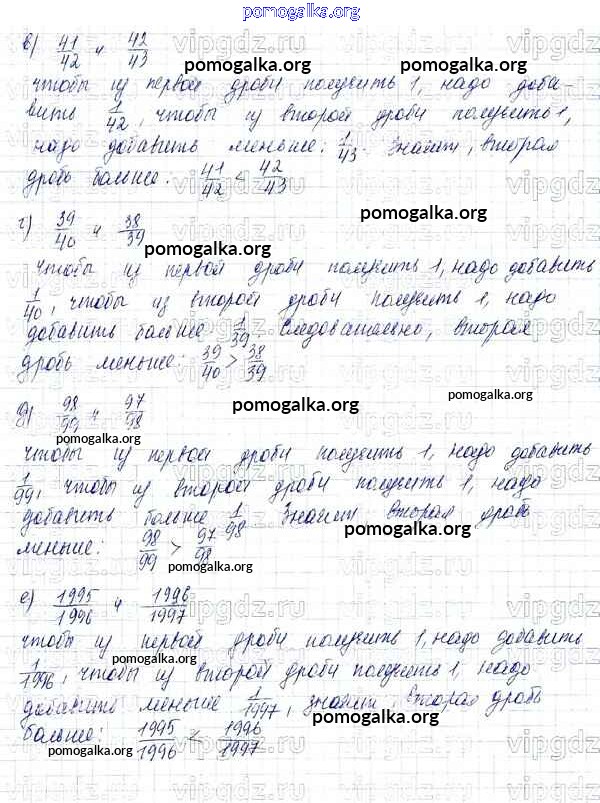 pomogalka.org
в) 41/42 и 42/43
pomogalka.org
чтобы из первой дроби получить 1, надо доба-
вить 1/42, чтобы из второй дроби получить 1,
надо добавить меньше: 1/43. Значит, вторая
дробь больше: 41/42 < 42/43
pomogalka.org
г) 39/40 и 38/39
pomogalka.org
чтобы из первой дроби получить 1, надо добавить
1/40, чтобы из второй дроби получить 1, надо
добавить больше 1/39. Следовательно, вторая
дробь меньше: 39/40 > 38/39
pomogalka.org
д) 98/99 и 97/98
pomogalka.org
чтобы из первой дроби получить 1, надо добавить
1/99, чтобы из второй дроби получить 1, надо
добавить больше 1/98. Значит вторая дробь
меньше: 98/99 > 97/98
pomogalka.org
pomogalka.org
е) 1995/1996 и 1996/1997
чтобы из первой дроби получить 1, надо добавить
pomogalka.org
1/1996, чтобы из второй дроби получить 1, надо
добавить меньше 1/1997, значит вторая дробь
pomogalka.org
больше: 1995/1996 < 1996/1997
pomogalka.org
vipgdz.ru